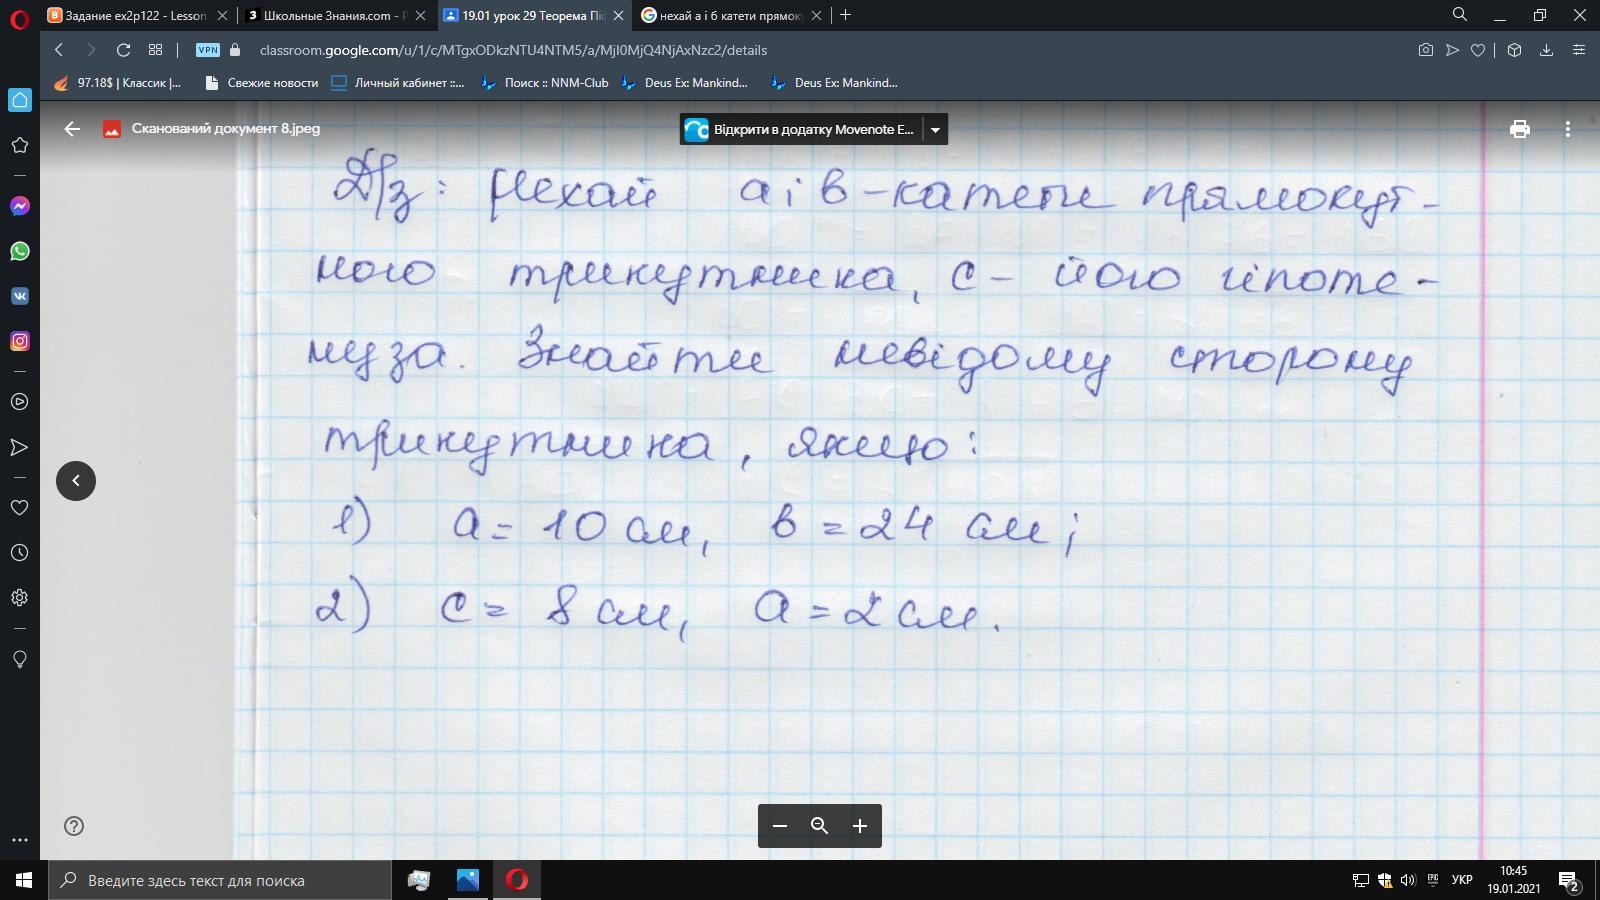 Задание ex2p122 - Lesson
Школьные Знания.com - Р
19.01 урок 29 Теорема Піф
нехай а і б катети прямоку
VPN
classroom.google.com/u/1/c/MTgxODkzNTU4NTM5/a/MjI0MjQ4NjAxNzc2/details
97.18$ | Классик |...
Свежие новости
Личный кабинет ::...
Поиск :: NNM-Club
Deus Ex: Mankind...
Deus Ex: Mankind...
Сканований документ 8.jpeg
Відкрити в додатку Movenote E...
Д/з: Нехай а і в – катети прямокут-
ного трикутника, с – його гіпоте-
нуза. Знайти невідому сторону
трикутника, якщо:
1) а = 10 см, в = 24 см;
2) с = 8 см, а = 2 см.
Введите здесь текст для поиска
УКР
10:45
19.01.2021
2